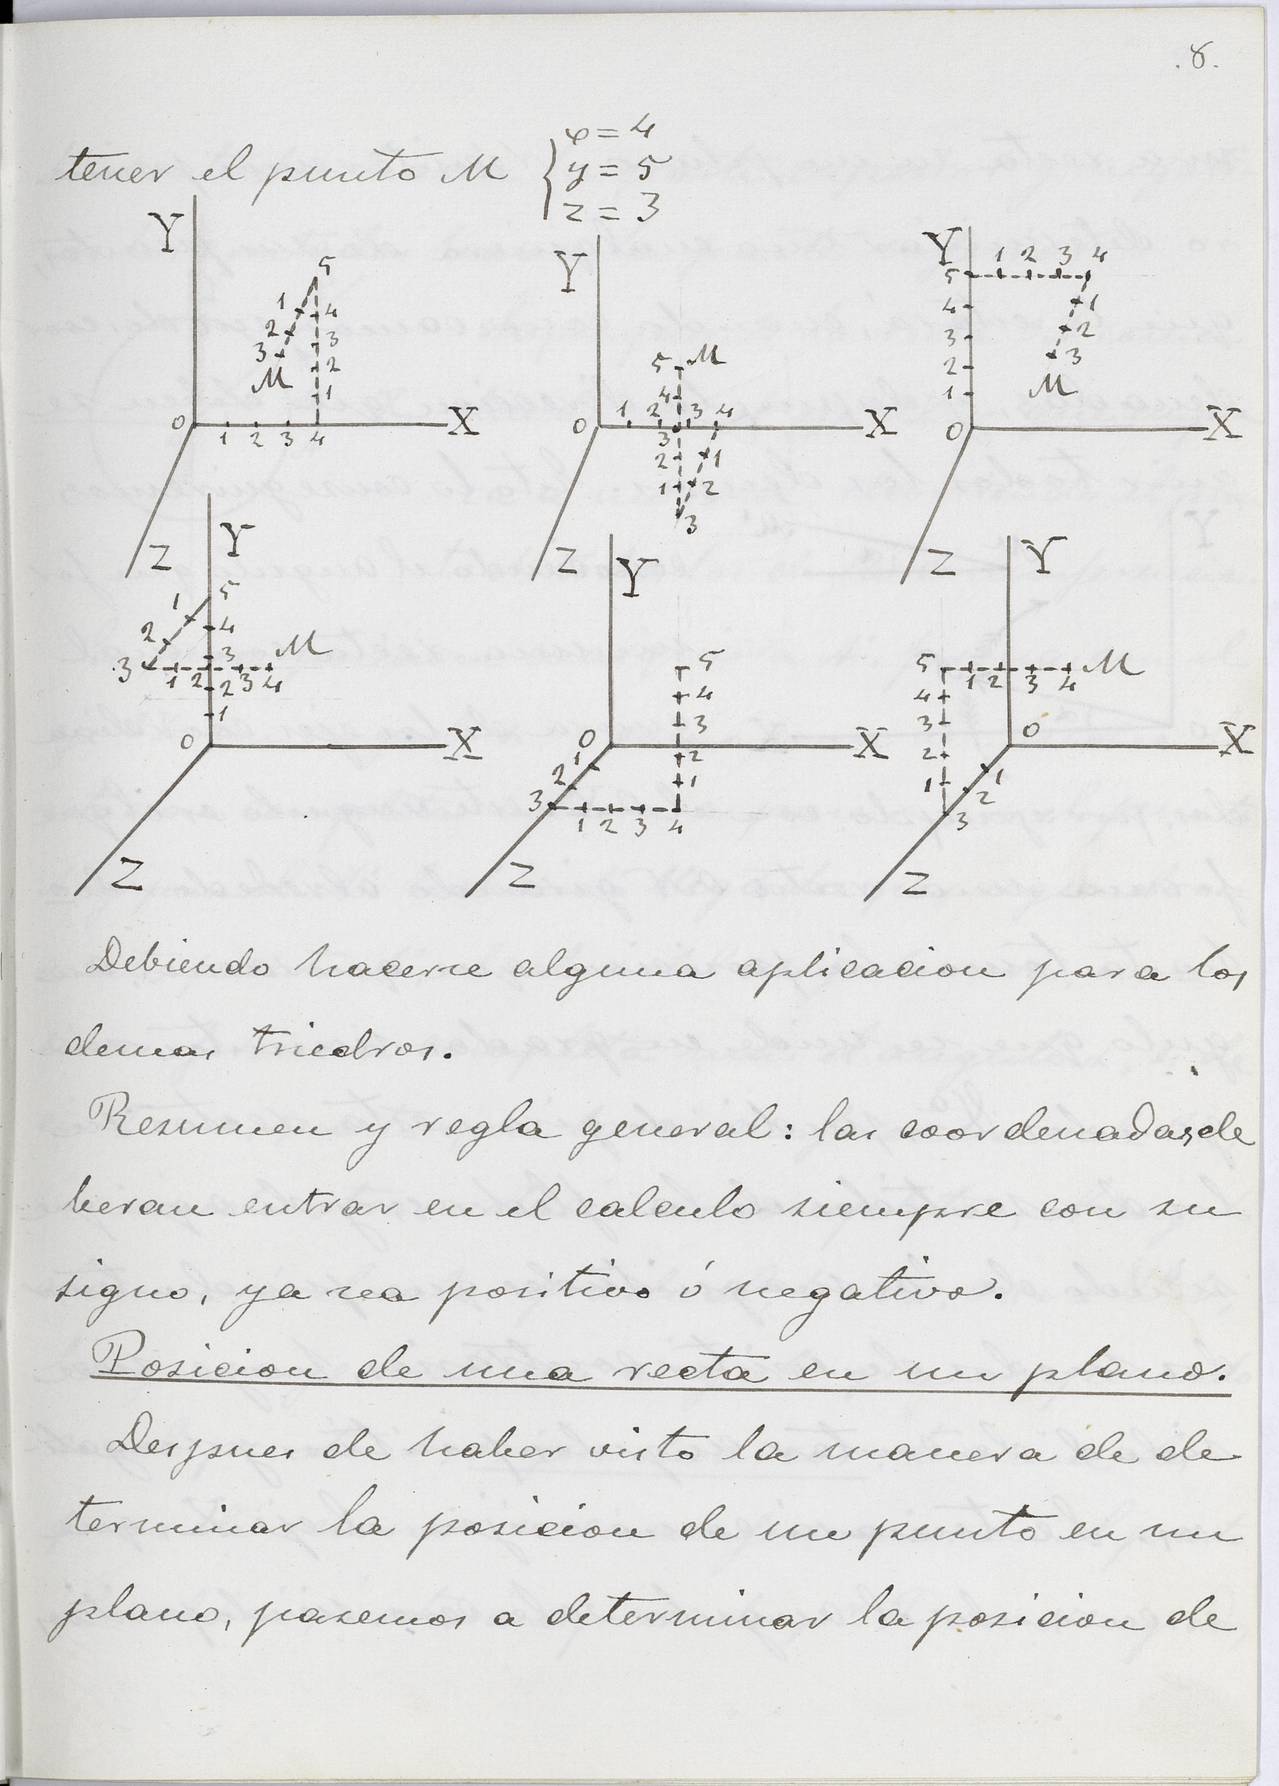 .8.
x = 4
tener el punto M { y = 5
z = 3
Y 5 1 4 2 3 3 2 M 1 O 1 2 3 4 X Z
Y 5 M 4 1 2 3 4 O 3 X 2 1 1 2 3 Z
Y 1 2 3 4 5 4 1 3 2 2 3 1 M O X Z
Y 1 5 2 4 3 3 M 1 2 2 3 4 1 O X Z
Y 5 4 3 O 2 X 1 1 2 3 1 2 3 4 Z
Y 5 M 1 2 3 4 4 3 O X 2 1 1 2 3 Z
Debiendo hacerse alguna aplicacion para los
demas triedros.
Resumen y regla general: las coordenadas de
beran entrar en el calculo siempre con su
signo, ya sea positivo ó negativo.
Posicion de una recta en un plano.
Despues de haber visto la manera de de
terminar la posicion de un punto en un
plano, pasemos a determinar la posicion de